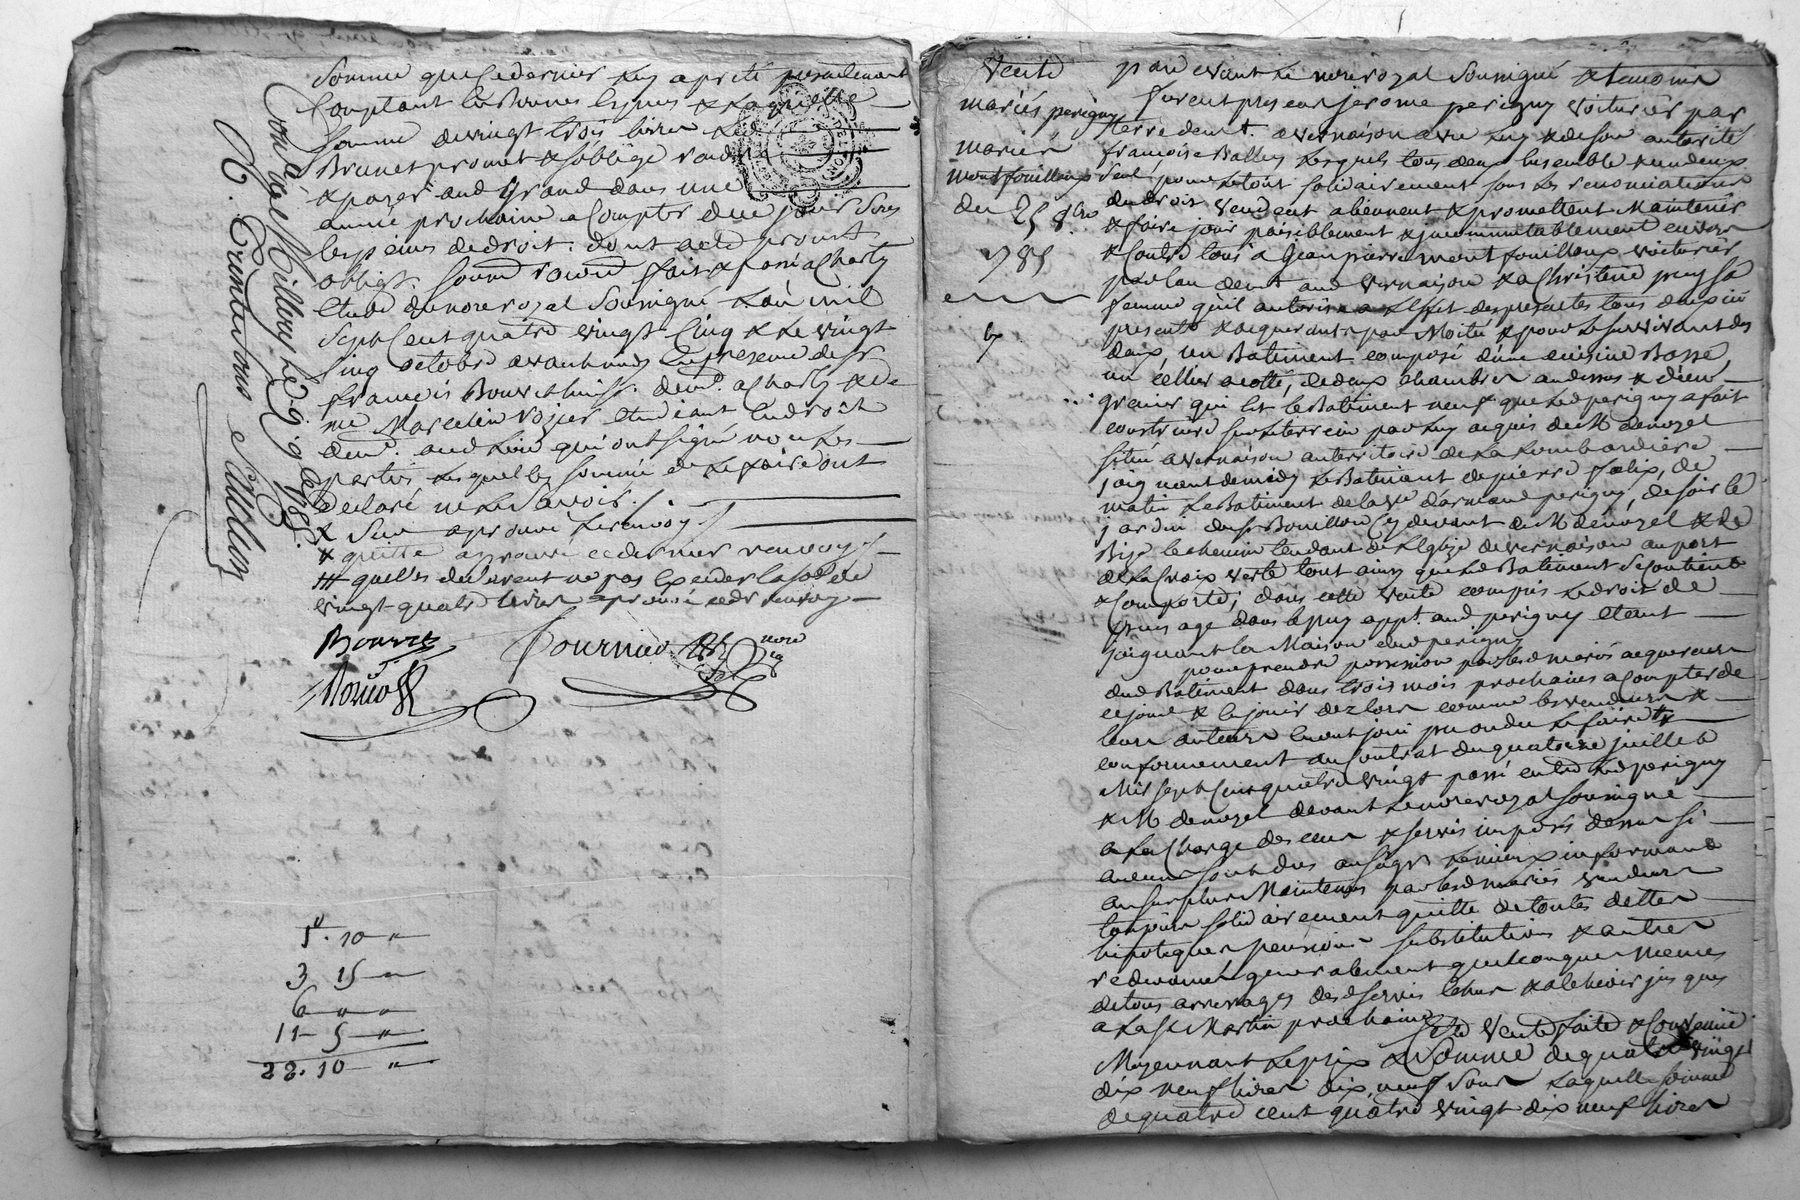 somme que ce dernier luy a preté presentement
comptant en bonnes especes & laquelle
somme de vingt trois livres led
Brunet promet & s'oblige rendre
& payer aud Grand dans une
année prochaine a compter de ce jour sous
les peines de droit. dont acte promt
obligt. soumt renond fait & passé a Charly
etude du nore royal soussigné l'an mil
sept cent quatre vingt cinq & le vingt
cinq octobre avant midy en presence de sr
françois Bourret huissr. demt. a Charly & de
me Marcelin etudiant en droit
demt. aud lieu qui ont signé non les
parties lesquelles sommé de le faire ont
declaré ne le savoir ./.
approuvé le renvoy ./.
& quitte approuvé ce dernier renvoy ./.
# ne pas exceder la sode de
vingt quatre livres aprouvé ced renvoy
Bourret
Fournier nore
Con. a Millery le 9 9bre 1785.
R. Trente sous
5.10 "
3 15 "
6 " "
11 5 "
22.10 "
Vente
mariés perigny
mariés
montfouilloux
du 25 8bre
1785
par devant le nore royal soussigné & temoins
furent presens jerome perigny voiturier par
terre demt. a vernaison avec luy & de son autorité
françoise Ballay lesquels tous deux ensemble & un deux
seul pour le tout solidairement sous les renonciations
de droit vendent alienent & promettent maintenir
& faire jour paisiblement & incommutablement envers
& contre tous a jean pierre montfouilloux voiturier
par eau demt aud vernaison & a Christine puy sa
femme qu'il autorise a l'effet des presentes tous deux icy
presents & acquerants par moitié & pour le survivant des
deux, un Batiment composé d'une cuisine Basse,
un cellier a coté, de deux chambres au dessus & d'un
grenier qui est le Batiment neuf que led perigny a fait
construire sur le terrein par luy acquis de M denozel
situé a vernaison au territoire de la Lombardiere
joignant de midy le Batiment de pierre felix, de
matin le Batiment de la ve d'armand perigny, de soir le
jardin du sr Bouillon cy devant de M denozel & de
Bize le chemin tendant de l'eglize de vernaison au port
de la Croix verte tout ainsy que led Batiment se contient
& comporte; dans cette vente compris le droit de
puis age dans le puy appt. aud. perigny etant
joignant la maison dud perigny
pour prendre possession par lesd mariés acquereurs
dud Batiment dans trois mois prochains a compter de
ce jour & en jouir dez lors comme les vendeurs &
leurs auteurs en ont joui pu ou du le faire &
conformement au contrat du quatorze juillet
mil sept cens quatre vingt passé entre led perigny
& M denozel devant le nore royal soussigné
a la charge des cens & servis imposés dessus si
aucuns sont dus au sgr le mieux informand
au surplus maintenus par lesd mariés vendeurs
toujours solidairement quitte de toutes dettes
hipoteques pensions substitutions & autres
redevances generalement quelconques memes
de tous arrerages desd servis echus & a echeoir jusques
a la st Martin prochaine. Cette vente faite & convenue
moyennant le prix & somme de quatre vingt
dix neuf livres dix neuf sous laquelle somme
de quatre cent quatre vingt dix neuf livres